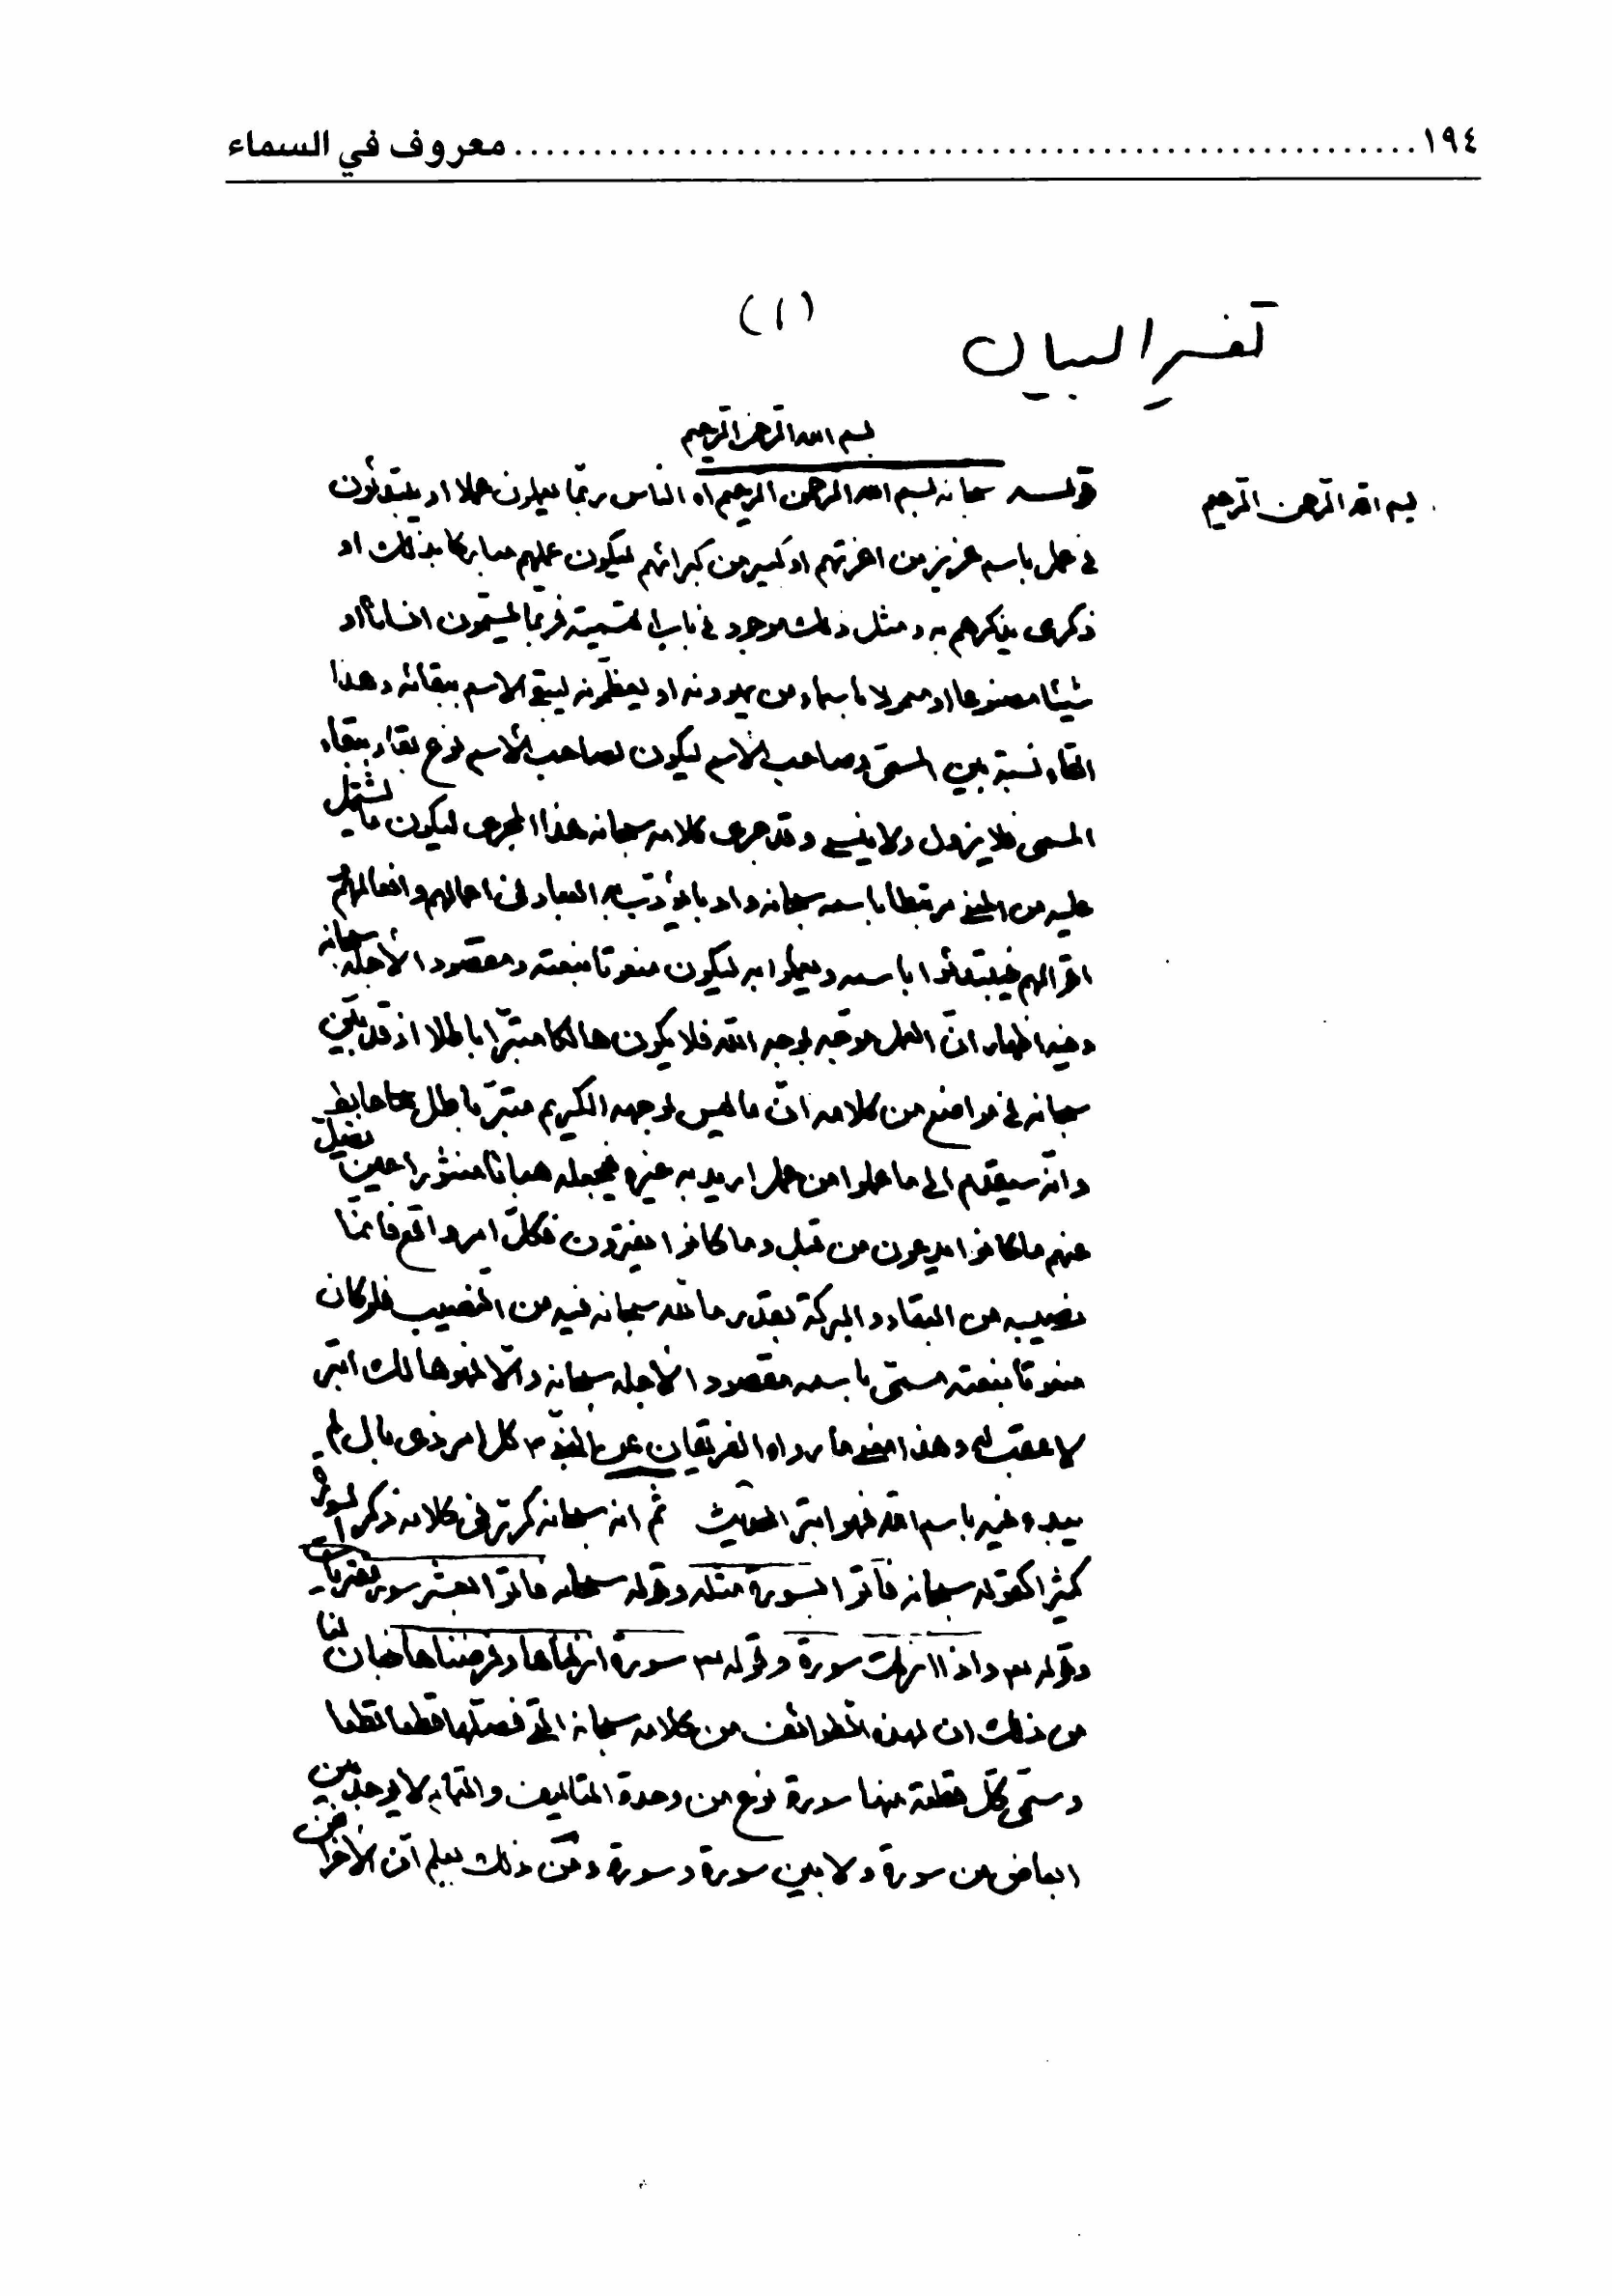 ١٩٤ ........................................................ معروف في السماء
(١)
تفسير البيان
بسم الله الرحمن الرحيم
بسم الله الرحمن الرحيم
قولـه سبحانه بسم الله الرحمن الرحيم اه الناس ربّما يعملون عملا او يبتدئون
في عمل باسم عزيز من اعزتهم او كبير من كبرائهم ليكون عملهم مباركا بذلك او
ذكرى يذكرهم به و مثل ذلك موجود في باب التسمية فربّما يسمّون انسانا او
شيئا مصنوعا او معمولا باسماء من يحبونه او يعظّمونه ليبقى الاسم ببقائه و هذا
القاء نسبة بين المسمّى و صاحب الاسم ليكون لصاحب الاسم نوع بقاء ببقاء
المسمى فلا يزول ولا ينسى و قد جرى كلامه سبحانه هذا المجرى ليكون ما يشتمل
عليه من المعنى مرتبطا باسمه سبحانه و ادبا يؤدّب به العباد في اعمالهم و افعالهم و
اقوالهم فيبتدئوا باسمه و يعملوا به ليكون منعوتا بنعته و مقصودا لأجله سبحانه
و فيه اظهار انّ العمل موجّه لوجه الله فلا يكون هالكا متبّرا باطلا اذ قد بيّن
سبحانه في مواضع من كلامه انّ ما ليس لوجهه الكريم متبّر باطل حابط
و انّه سيقدم الى ما عملوا من عمل اريد به غيره فيجعله هباءً منثورا حين يضلّ
عنهم ما كانوا يدعون من قبل و ما كانوا يفترون فكلّ امر واقع فانمّا
نصيبه من البقاء و البركة بقدر ما لله سبحانه فيه من النصيب فلو كان
منعوتا بنعته مسمّى باسمه مقصودا لأجله سبحانه و الّا فهو هالك ابتر
لا عقب له و هذا معنى ما رواه الفريقان عن النبيّ ص كل امر ذى بال لم
يبدء فيه باسم الله فهو ابتر الحديث ثم انه سبحانه كرّر في كلامه ذكر السورة
كثيرا كقوله سبحانه فأتوا بسورة مثله و قوله سبحانه فأتوا بعشر سور مفتريات
و قوله سه و اذا انزلت سورة و قوله سه سورة انزلناها و فرضناها فبان لنا
من ذلك ان لهذه الطوائف من كلامه سبحانه الّتي فصّلها قطعا قطعا
و سمّى كلّ قطعة منها سورة نوع من وحدة التأليف و التمام لا يوجد بين
ابعاض من سورة و لا بين سورة و سورة و من ذلك يعلم انّ الأغراض